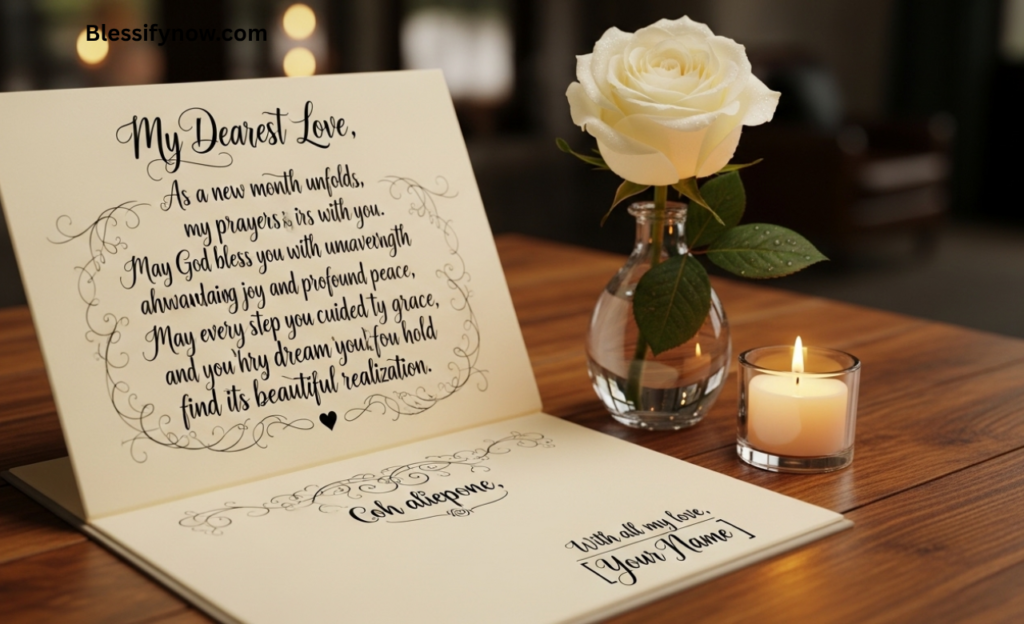 Blessifynow.com
My Dearest Love,
As a new month unfolds,
my prayers irs with you.
May God bless you with unaverngth
ahwandaing joy and profound peace,
May every step you cuided ty grace,
and you'hry dream you't fou hold
find its beautiful realization.
Coh aliepone,
With all my love,
[Your Name]